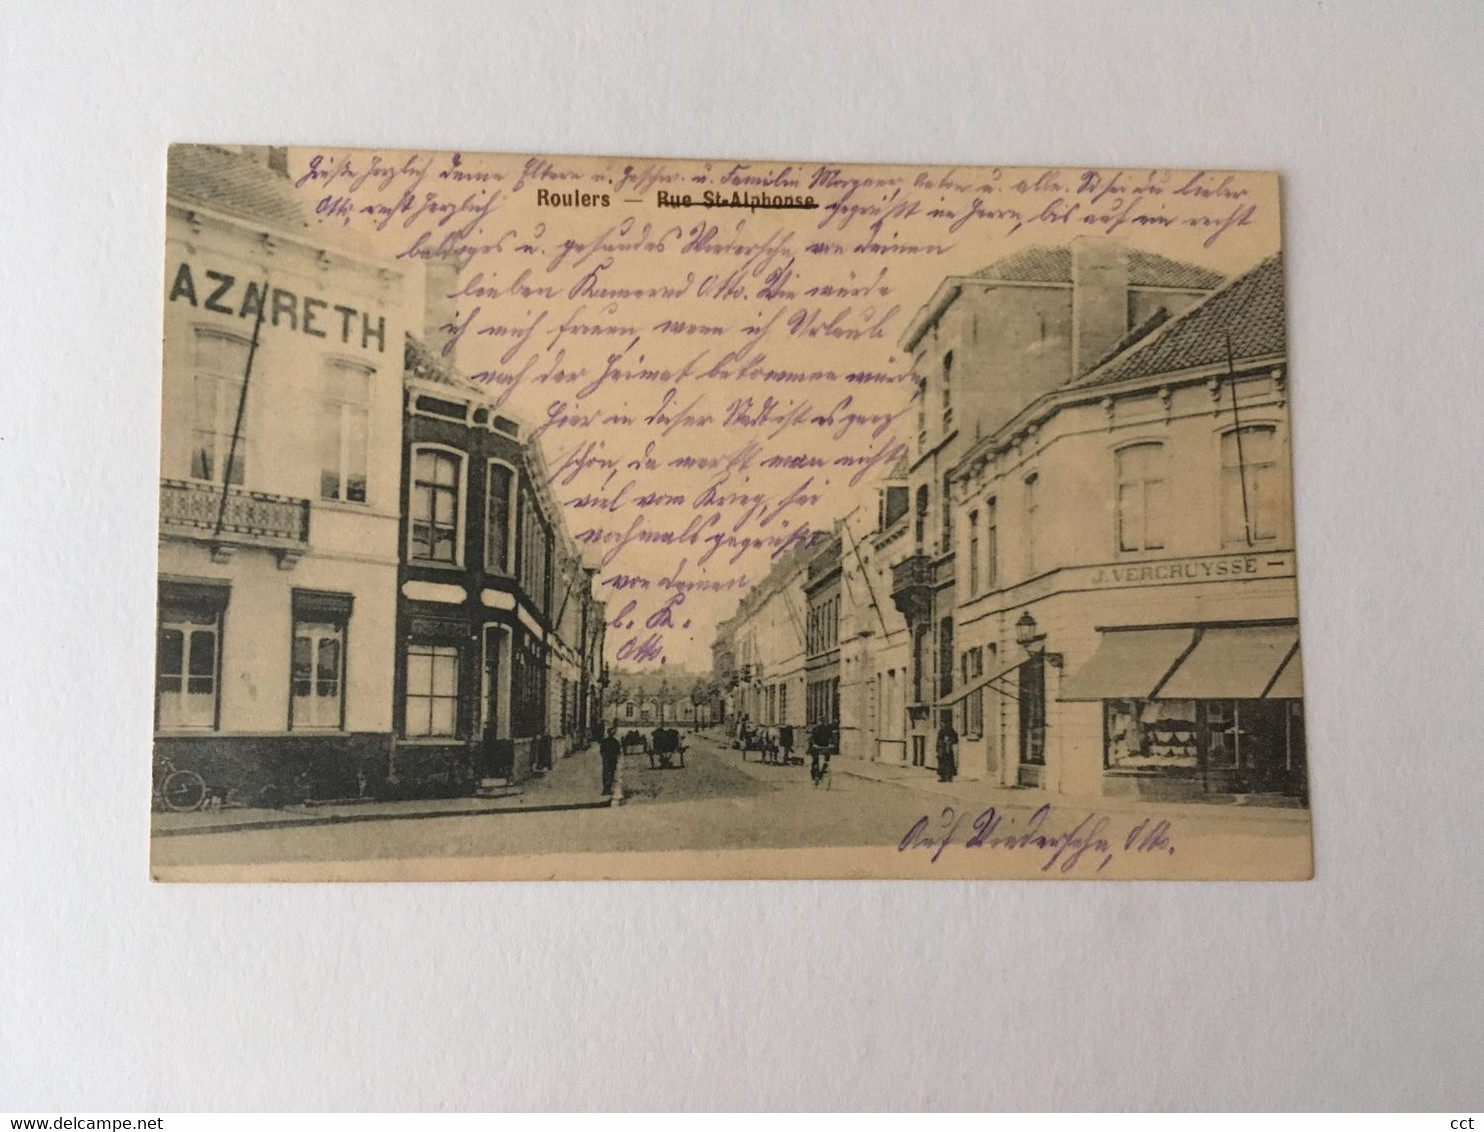 Grüße herzlich deine Eltern u. Geschw. u. Familie Morgner, u. alle. So sei du lieber
Otto, recht herzlich gegrüßt im Herrn, bis auf ein recht
Roulers — Rue St-Alphonse
baldiges u. gesundes Wiedersehn, von deinem
lieben Kamerad Otto. Wie würde
ich mich freuen, wenn ich Urlaub
nach der Heimat bekommen würde,
Hier in dieser Stadt ist es ganz
schön, da merkt man nicht
viel vom Krieg, sei
nochmals gegrüßt
von deinem
l. K.
Otto.
AZARETH
J. VERCRUYSSE –
Auf Wiedersehn, Otto.
cct